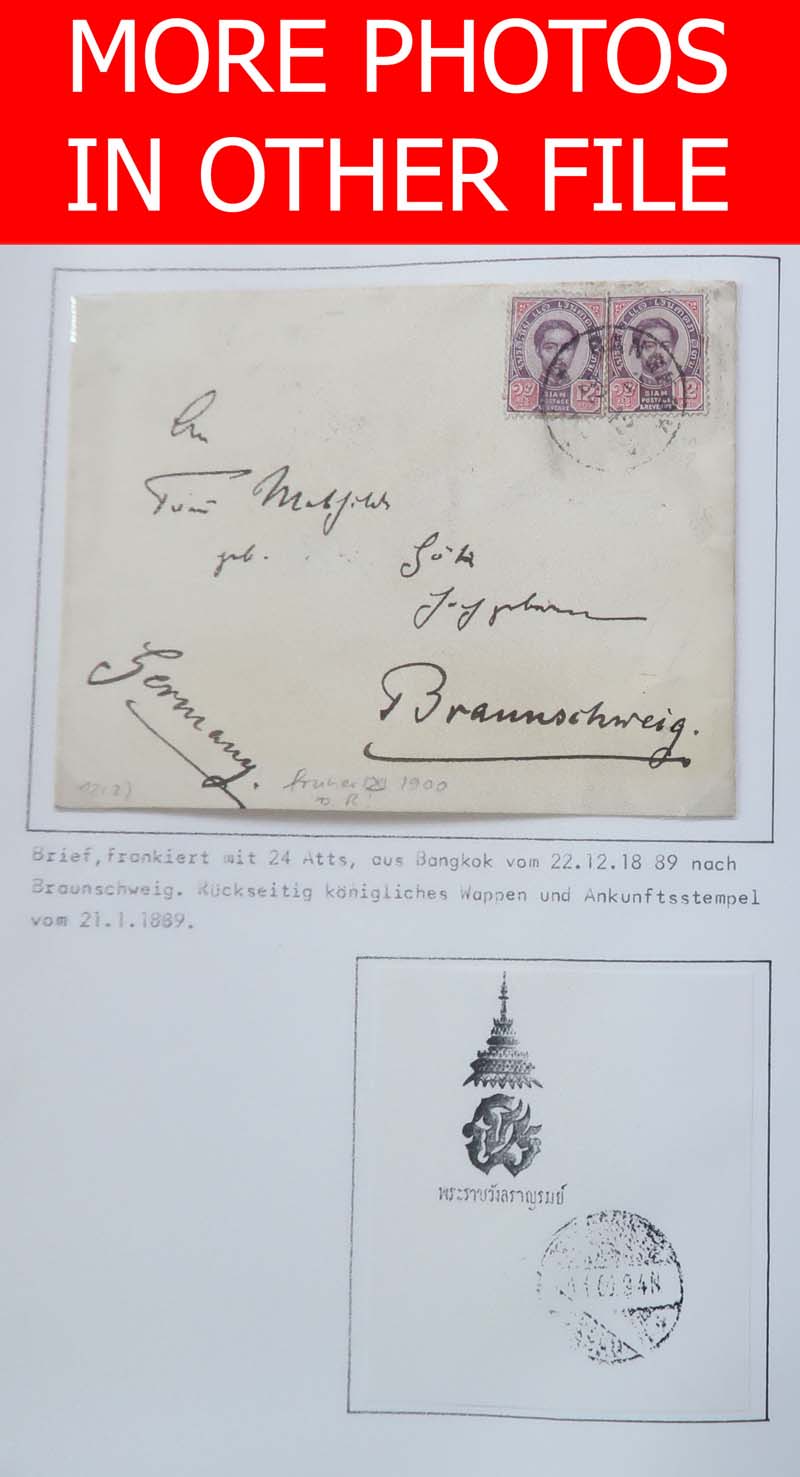 MORE PHOTOS
IN OTHER FILE
SIAM SIAM
POSTAGE POSTAGE
&REVENUE &REVENUE
An
Frau Mathilde
geb. Götte
Hochgeboren
Braunschweig.
Germany.
früher 1900
Brief,frankiert mit 24 Atts, aus Bangkok vom 22.12.18 89 nach
Braunschweig. Rückseitig königliches Wappen und Ankunftsstempel
vom 21.1.1889.
พระราชวังสราญรมย์